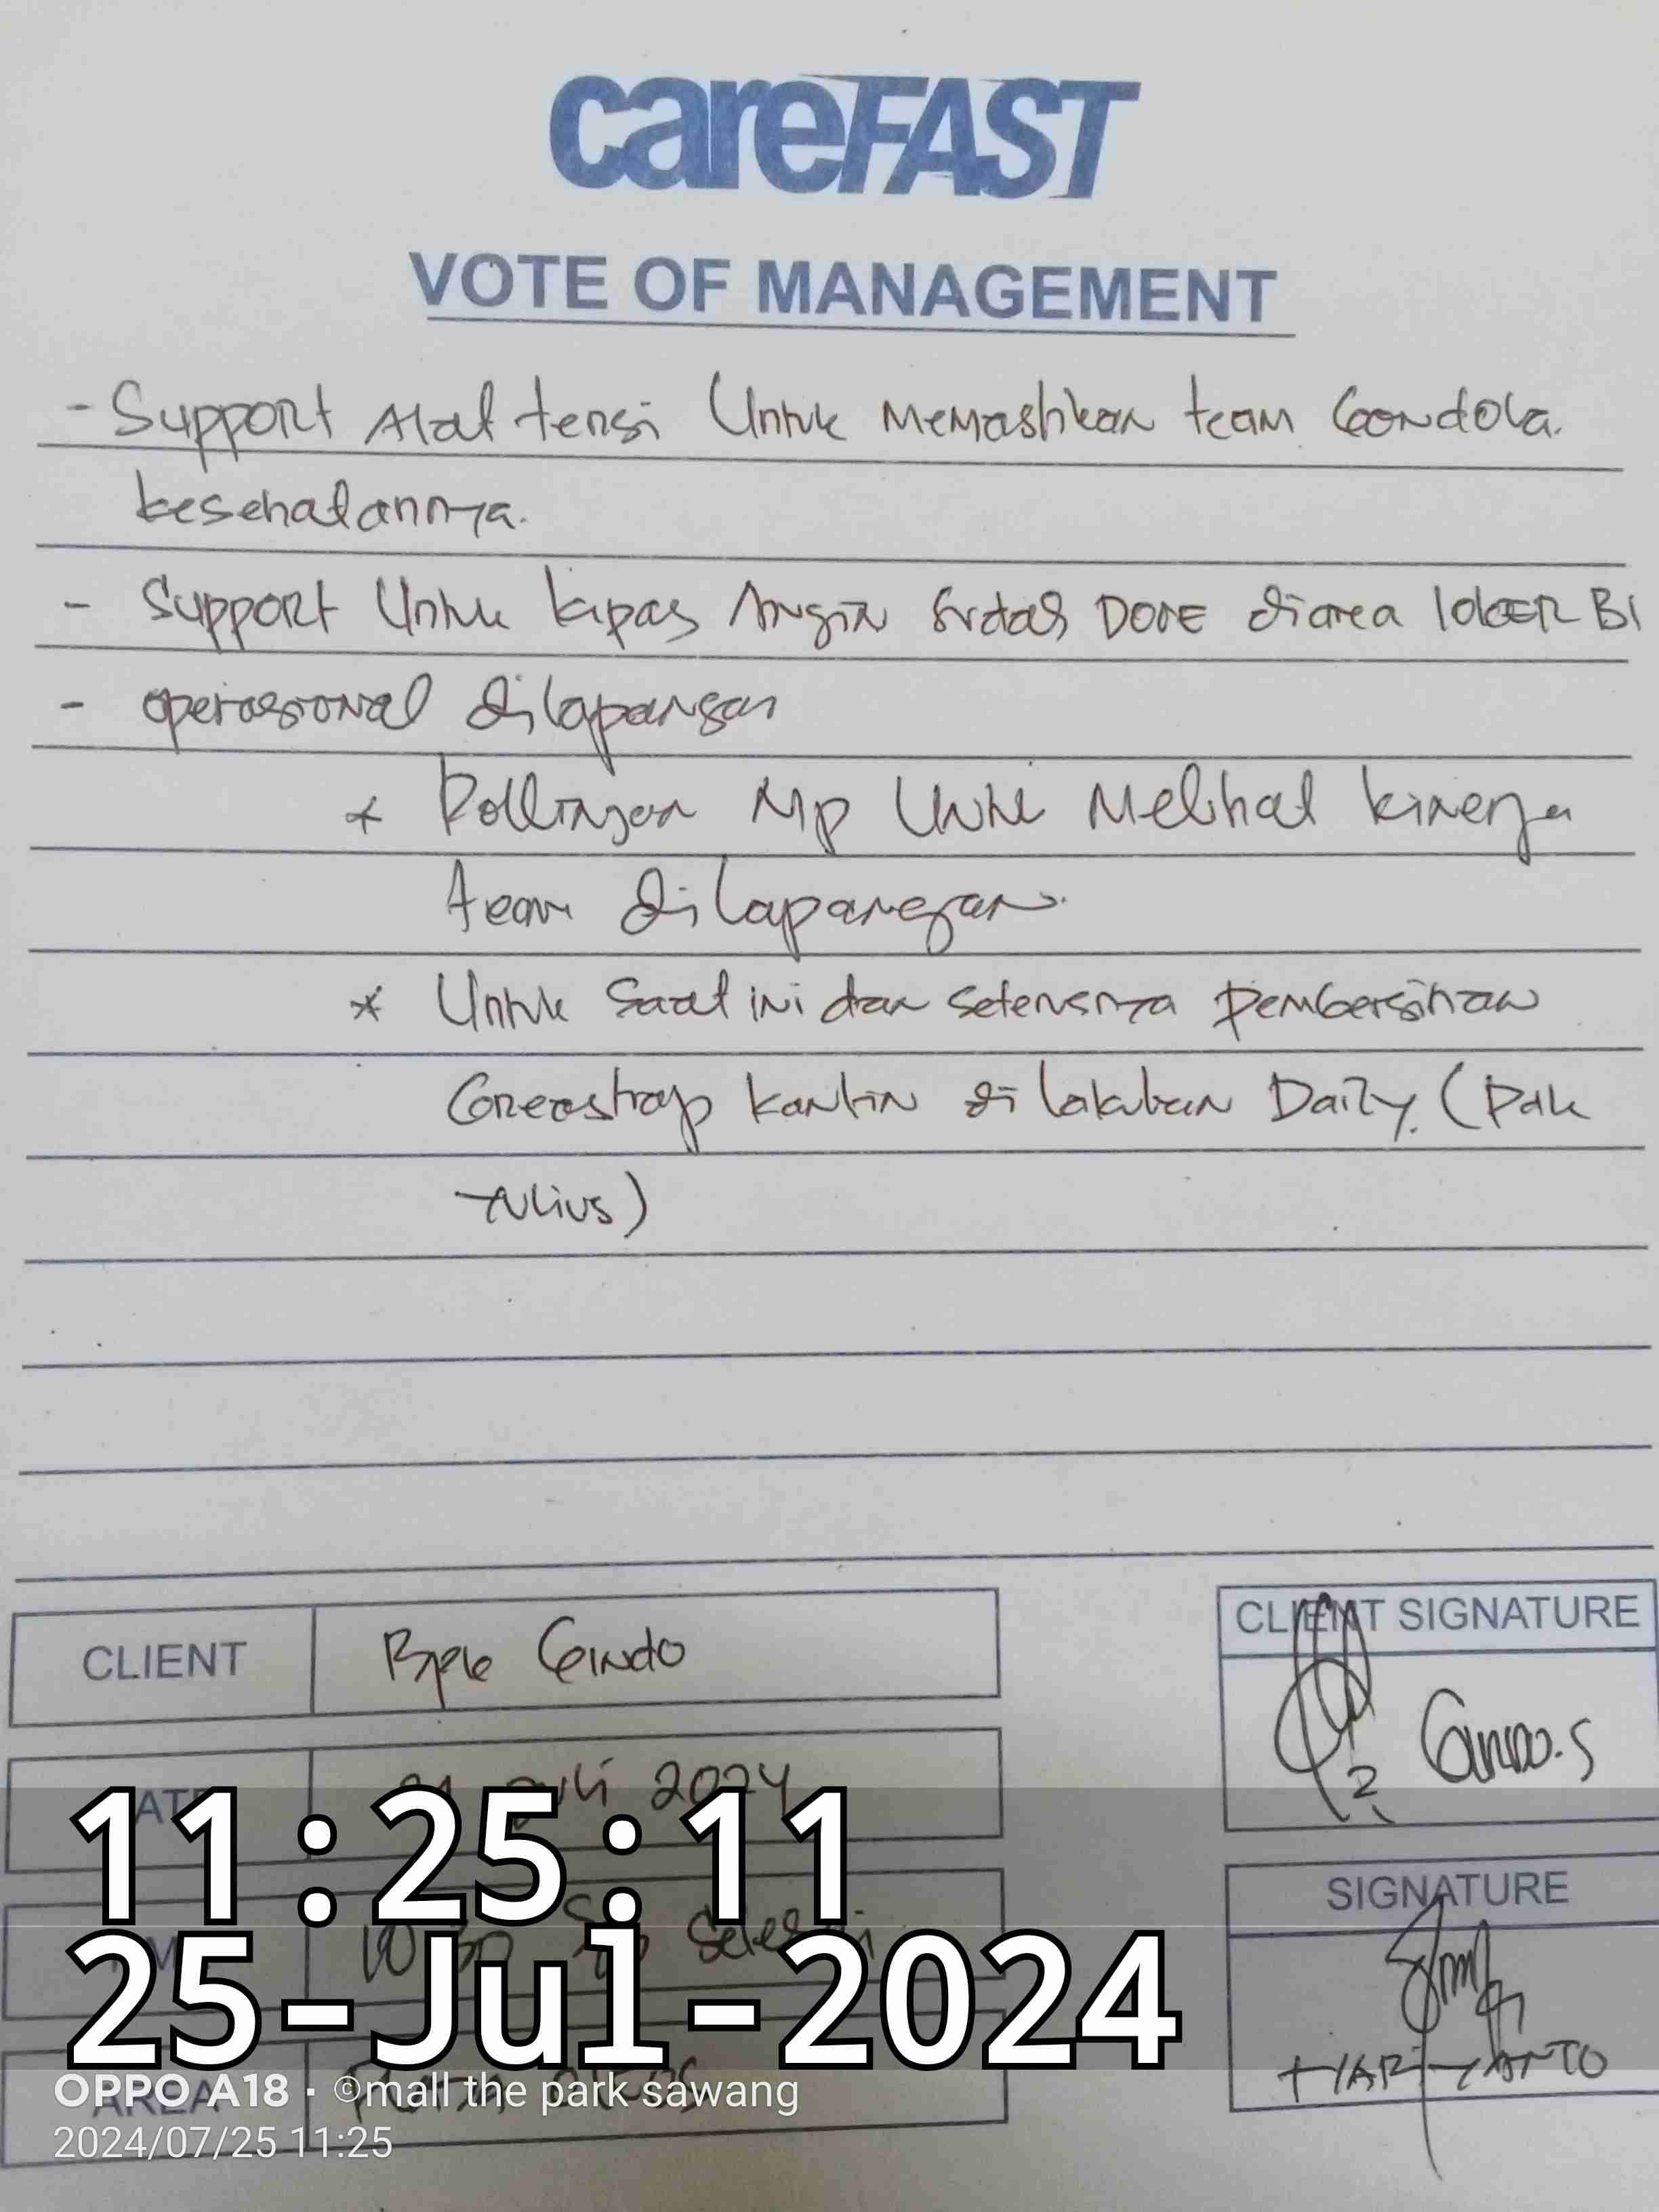 careFAST
VOTE OF MANAGEMENT
- Support Alat tensi Untuk Memastikan team Gondola.
kesehatannya.
- Support Untuk kipas Angin Sudah DONE diarea loker B1
- operasional dilapangan
* Rollingan Mp Untuk Melihat kinerja
team dilapangan.
* Untuk Saat ini dan seterusnya pembersihan
Greastrap kantin di lakukan Daily. (Pak
Yulius)
CLIENT Bpk Gindo
CLIENT SIGNATURE
Gindo.S
DATE Juli 2024
11:25:11
SIGNATURE
10:30 Selesai
25-Jul-2024
HARIYANTO
AREA
OPPO A18 · ©mall the park sawang
2024/07/25 11:25